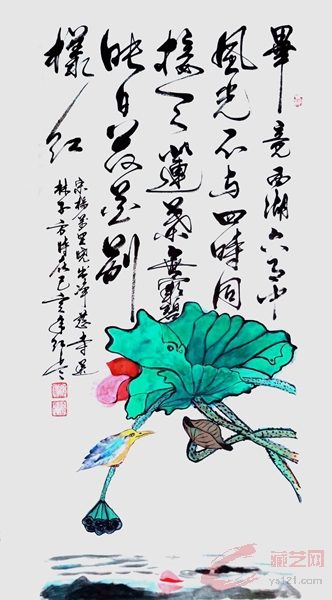 畢竟西湖六月中
風光不与四時同
接天蓮葉無窮碧
映日荷花别
樣红
宋楊萬里曉出淨慈寺送
林子方詩
己亥年
藏艺网
ys121.com